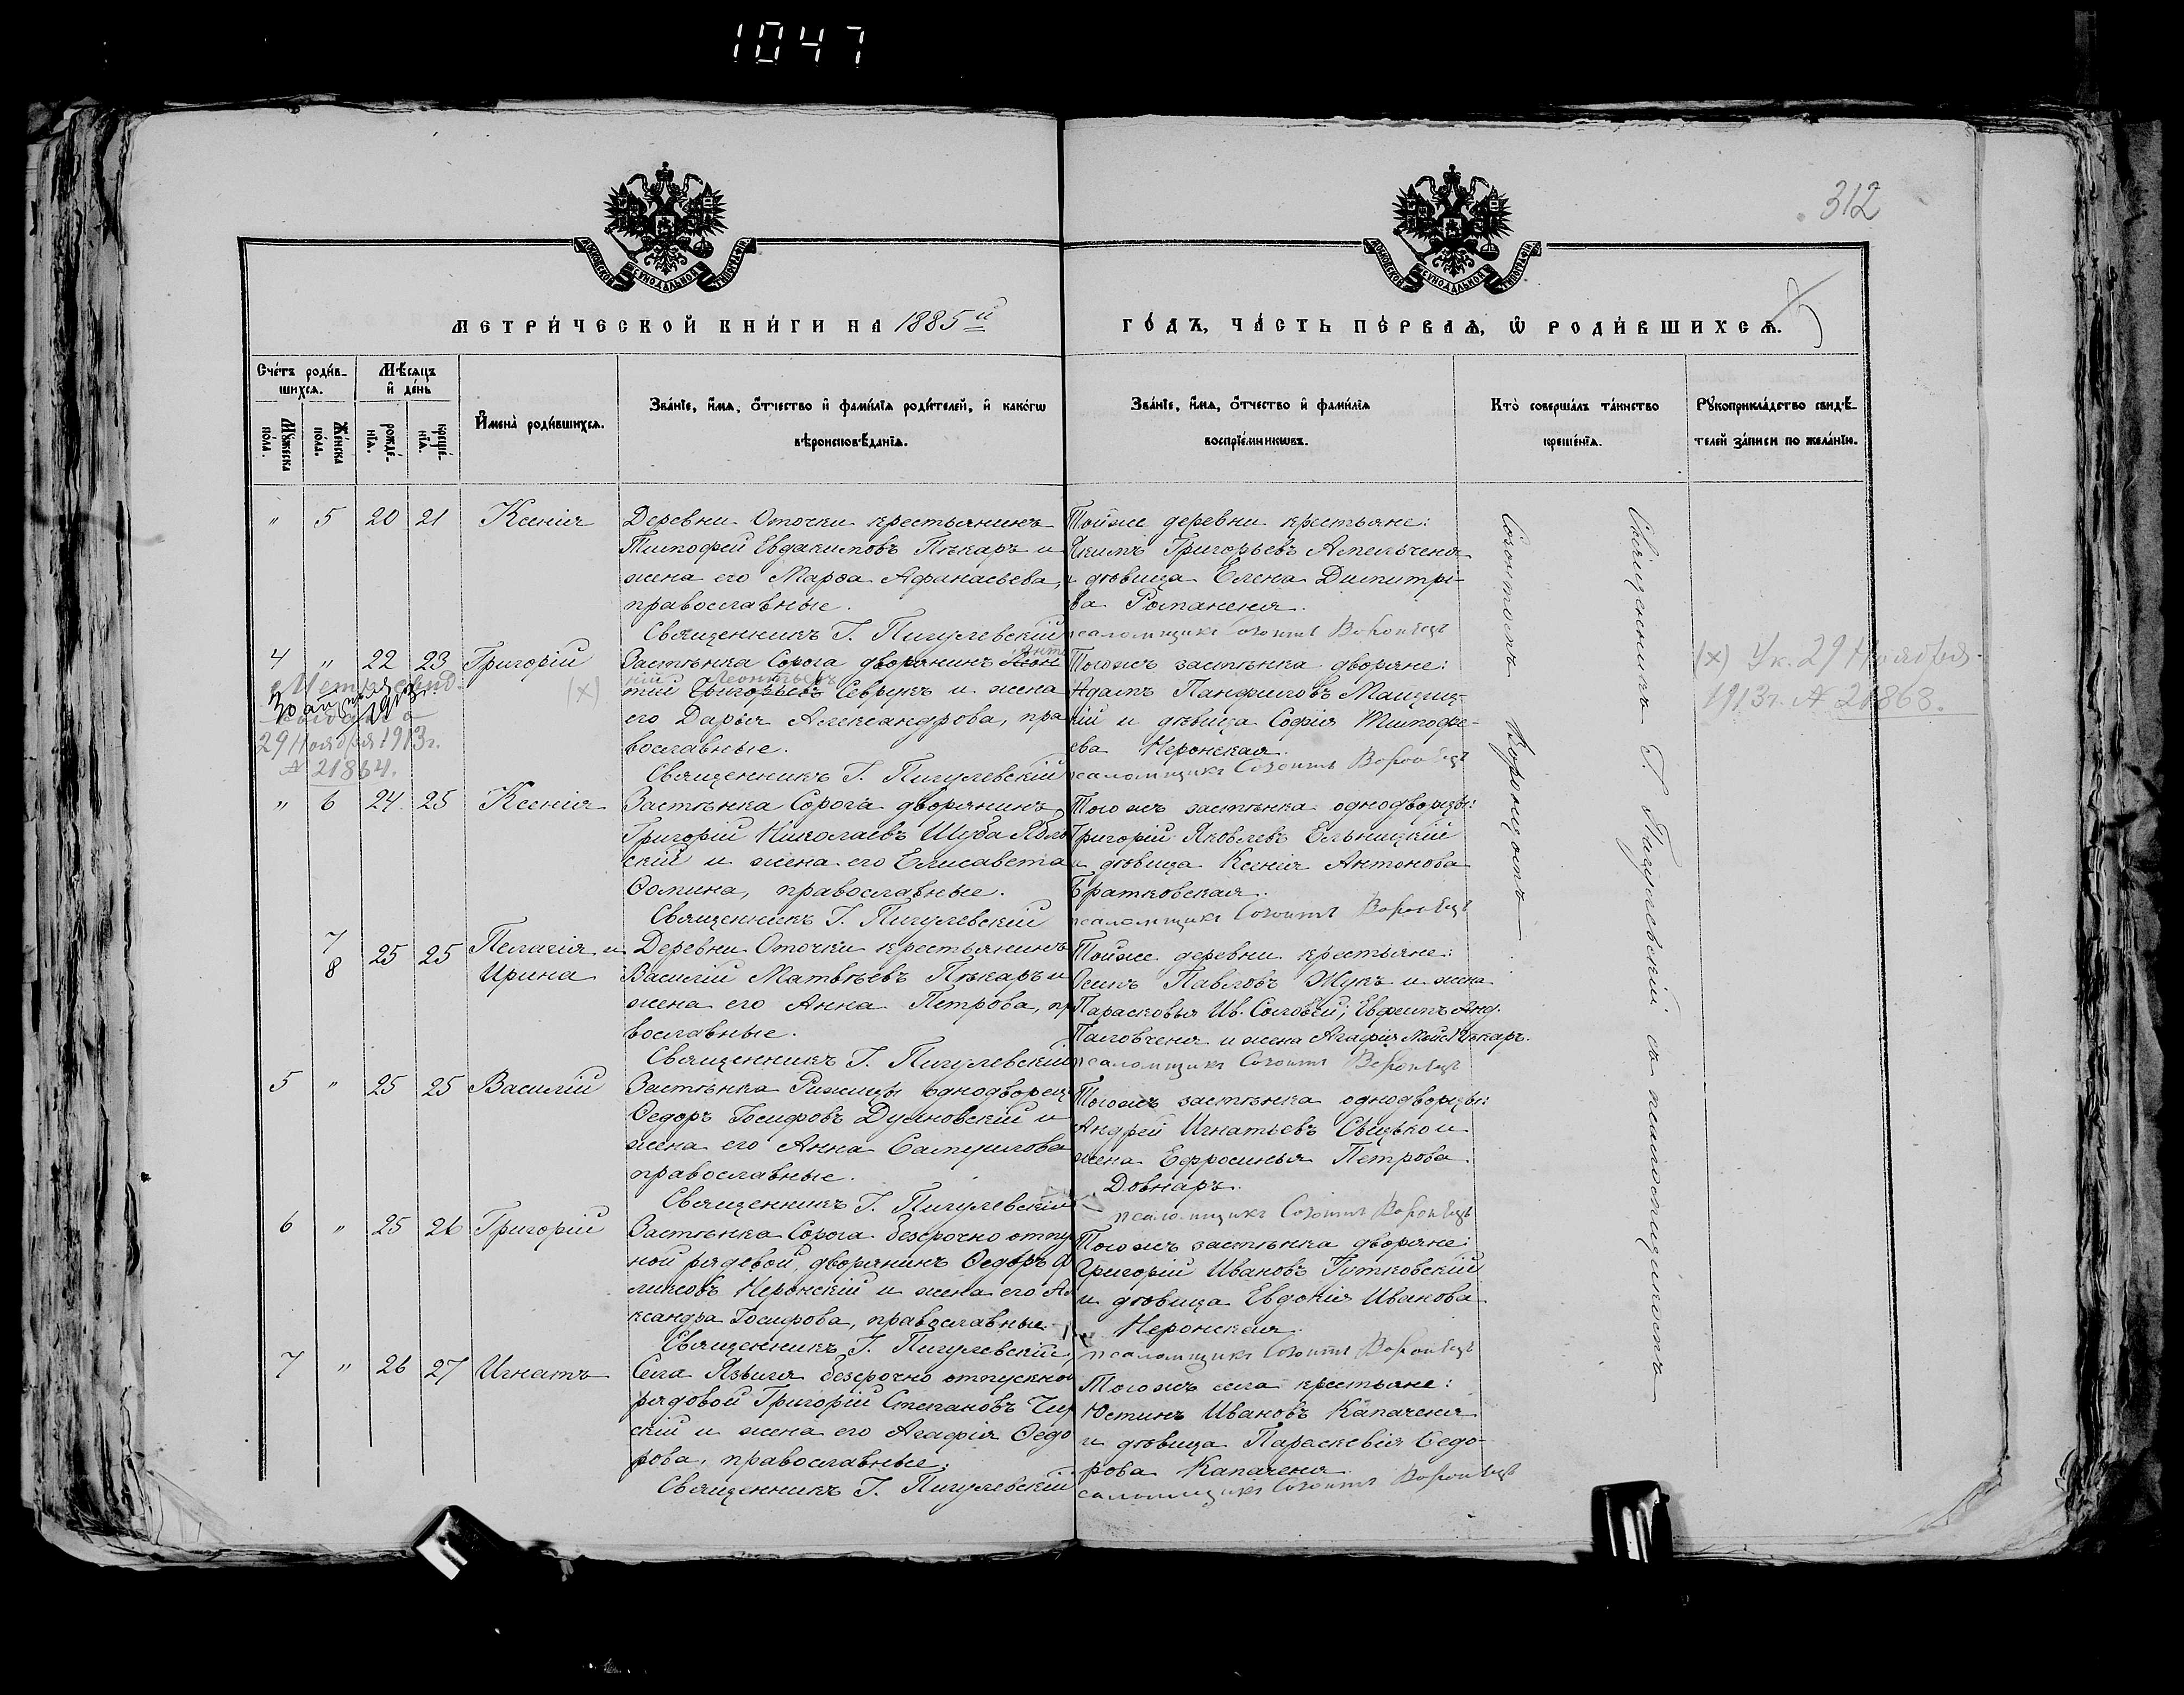 1047
312
МЕТРИ́ЧЕСКОЙ КНИ́ГИ НА 1885й
ГО́ДЪ, ЧА́СТЬ ПЕ́РВАѦ, Ѿ РОДИ́ВШИХСѦ.
5
Сче́тъ роди́в-
шихсѧ.
Мꙋ́жеска
по́ла.
Же́нска
по́ла.
Мѣ́сѧцъ
и҆ де́нь
рожде́-
нїѧ.
креще́-
нїѧ.
И҆мена̀ роди́вшихсѧ.
Зва́нїе, и҆́мѧ, ѻ҆́тчество и҆ фами́лїѧ роди́телей, и҆ како́гѡ
вѣроисповѣ́данїѧ.
Зва́нїе, и҆́мѧ, ѻ҆́тчество и҆ фами́лїѧ
воспрїе́мникѡвъ.
Кто̀ соверша́лъ та́инство
креще́нїѧ.
Рꙋкоприкла́дство свидѣ́-
телей за́писи по жела́нїю.
" 5 20 21 Ксенія
Деревни Оточки крестьянинъ
Тимофей Евдакимовъ Пѣкаръ и
жена его Марѳа Афанасьева,
православные.
Священникъ І. Пигулевскій
Тойже деревни крестьяне:
Якимъ Григорьевъ Амельченя
и дѣвица Елена Димитрі-
ва Романеня.
псаломщикъ Созонтъ Воронецъ
4 " 22 23 Григорій
(х)
Метр. свид.
29 Ноября 1913г.
№ 21864.
Застѣнка Сорога дворянинъ Леон
Анто
ній Леонтьевъ
тій Григорьевъ Севрукъ и жена
его Дарья Александрова, пра
вославные.
Священникъ І. Пигулевскій
Тогожъ застѣнка дворяне:
Адамъ Панфиловъ Машиц-
кій и дѣвица Софія Тимофе-
ева Неронская.
псаломщикъ Созонтъ Воронецъ
(х) Ук. 29 Ноября
1913г. № 21868.
" 6 24 25 Ксенія
Застѣнка Сорога дворянинъ
Григорій Николаевъ Шуба Ябло
скій и жена его Елисавета
Ѳомина, православные.
Священникъ І. Пигулевскій
Тогожъ застѣнка однодворцы:
Григорій Яковлевъ Ельницкій
и дѣвица Ксенія Антонова
Братковская.
псаломщикъ Созонтъ Воронецъ
7
8
25 25 Пелагія и
Ирина
Деревни Оточки крестьянинъ
Василій Матвѣевъ Пѣкаръ и
жена его Анна Петрова, пр
вославные.
Священникъ І. Пигулевскій
Тойже деревни крестьяне:
Осипъ Павловъ Жукъ и жена
Парасковья Ив. Соловей; Евфимъ Анд.
Паловченя и жена Агафія Моис. Пѣкаръ.
псаломщикъ Созонтъ Воронецъ
5 " 25 25 Василій
Застѣнка Рижицы однодворец
Ѳедоръ Іосифовъ Дуяновскій и
жена его Анна Самуилова
православные.
Священникъ І. Пигулевскій
Тогожъ застѣнка однодворцы:
Андрей Игнатьевъ Свицько и
жена Ефросинья Петрова
Довнаръ.
псаломщикъ Созонтъ Воронецъ
6 " 25 26 Григорій
Застѣнка Сорога безсрочно отпу
ной рядовой, дворянинъ Ѳедоръ Ф
ликсовъ Неронскій и жена его Ал
ксандра Іосифова, православные.
Священникъ І. Пигулевскій
Тогожъ застѣнка дворяне:
Григорій Ивановъ Гутковскій
и дѣвица Евдокія Иванова
Неронская.
псаломщикъ Созонтъ Воронецъ
7 " 26 27 Игнатъ
Села Язвиля безсрочно отпускной
рядовой Григорій Степановъ Чер
скій и жена его Агафія Ѳедо
рова, православные.
Священникъ І. Пигулевскій
Тогожъ села крестьяне:
Юстинъ Ивановъ Капаченя
и дѣвица Параскевія Ѳедо-
рова Капаченя.
псаломщикъ Созонтъ Воронецъ
Священникъ І. Пигулевскій съ псаломщикомъ
Созонтомъ Воронцомъ